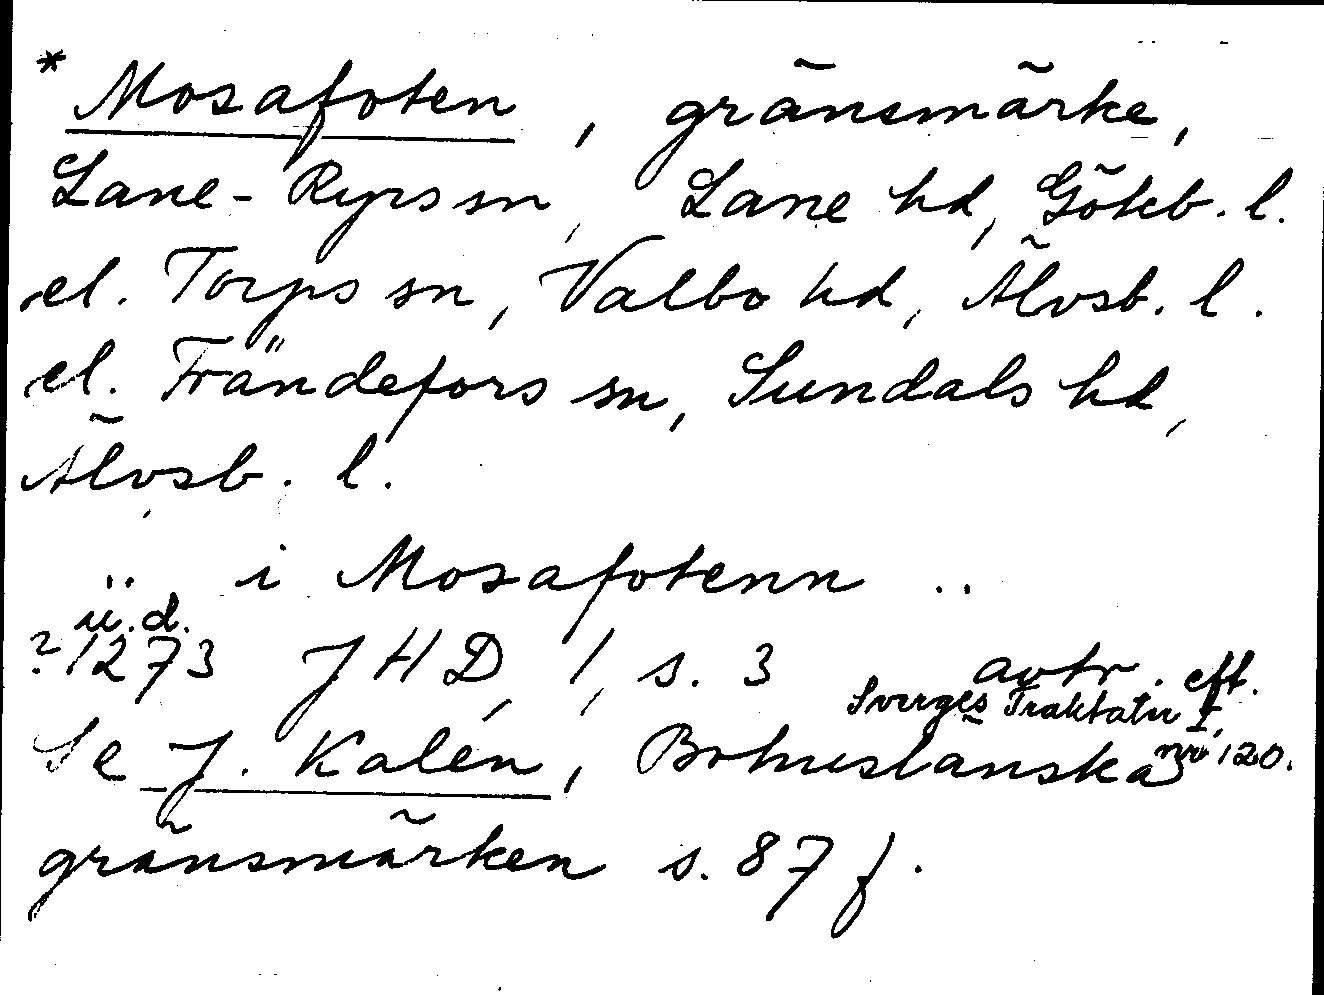 * Mosafoten, gränsmärke,
Lane-Ryrs sn, Lane hd, Göteb. l.
el. Torps sn, Valbo hd, Älvsb. l.
el. Frändefors sn, Sundals hd,
Älvsb. l.
.. i Mosafotenn ..
u.d.
? 1273 JHD, 1, s. 3 avtr. eft.
Sverges Traktater I,
nr 120.
Se J. Kalén, Bohuslänska
gränsmärken s. 87 f.